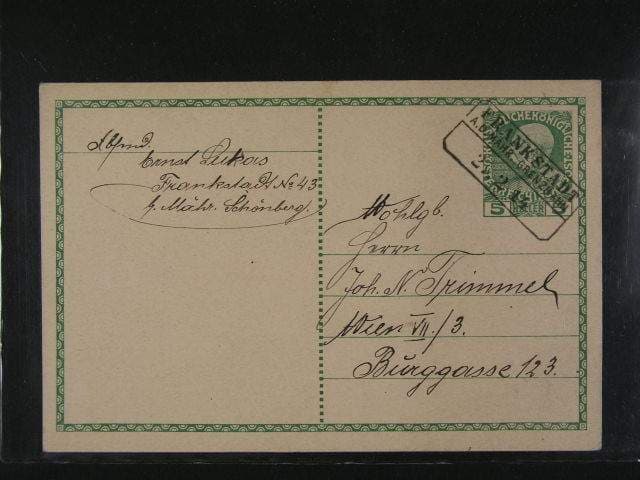 Absd.
Ernst Lukas
Frankstadt No 43
b. Mähr. Schönberg.
FRANKSTADT
5
5
Wohlgb.
Herrn
Joh. N. Trimmel
Wien VII./3.
Burggasse 123.